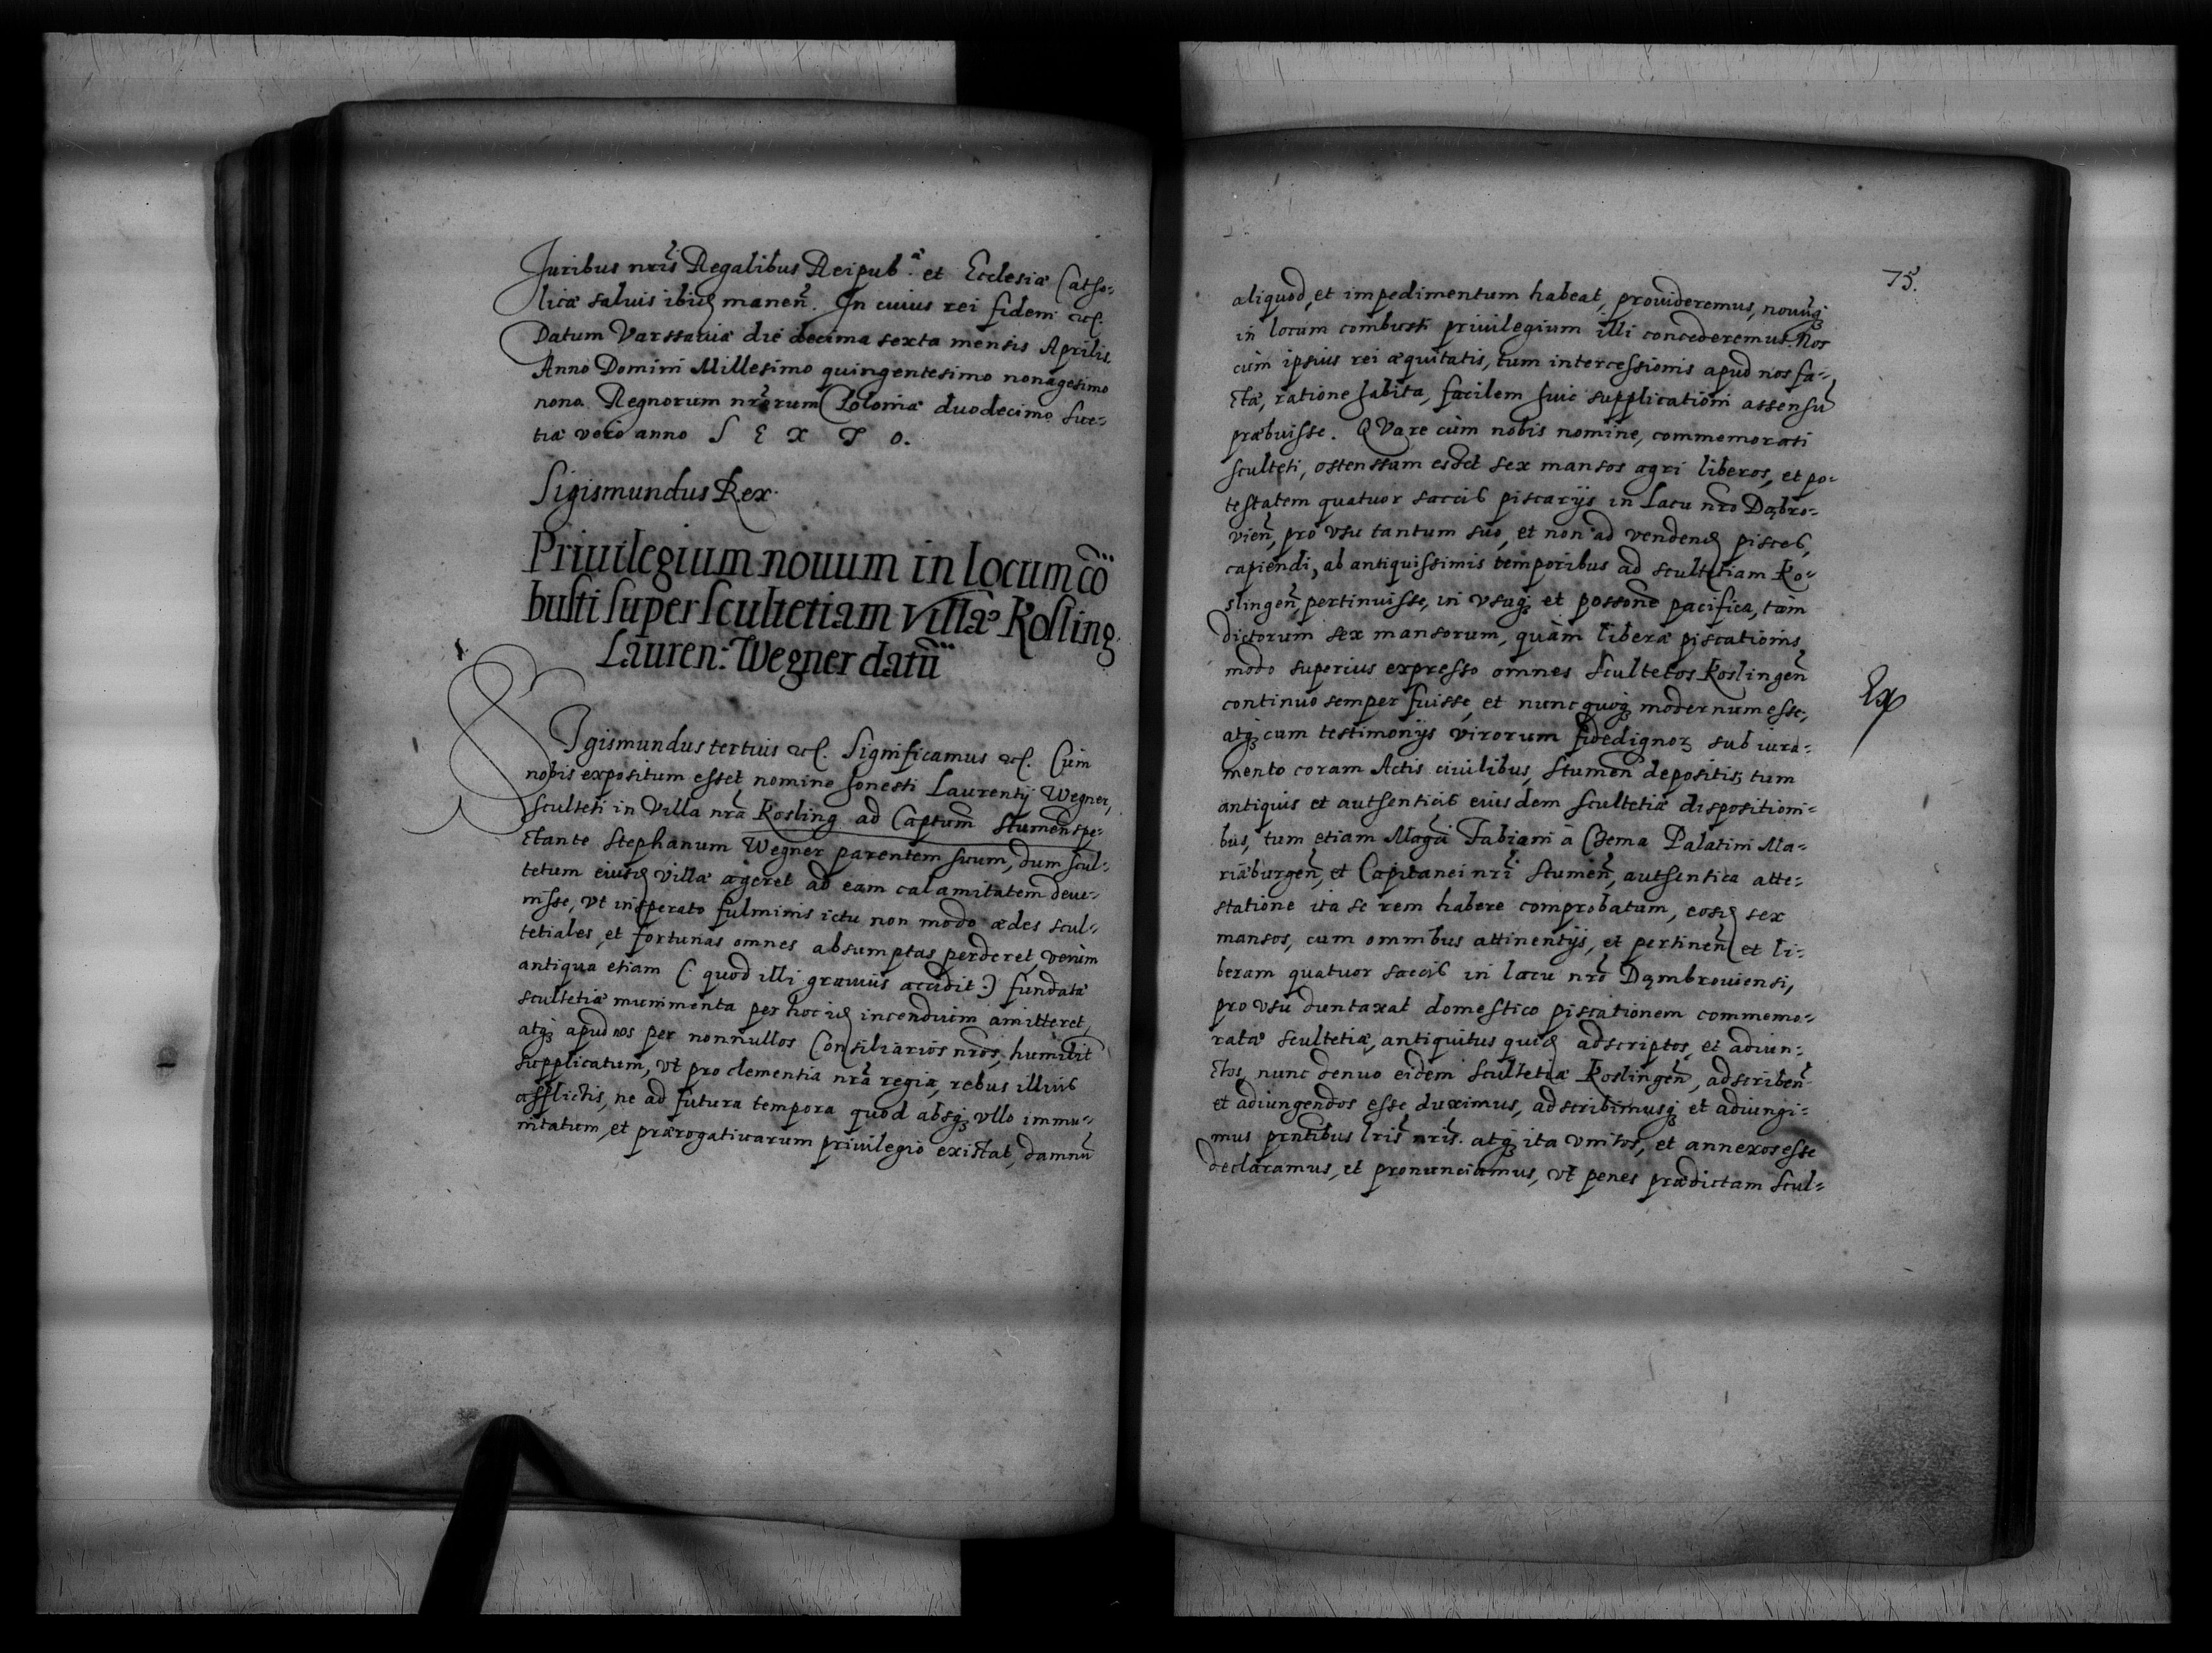 Juribus nrĩs Regalibus Reipub:ᵃ et Ecclesiæ Catho-
licæ saluis ibid manen̄. In cuius rei fidem etc.
Datum Varssauiæ die decima sexta mensis Aprilis
Anno Domini Millesimo quingentesimo nonagesimo
nono. Regnorum nrõrum Poloniæ duodecimo Sue-
tiæ vero anno S E X T O.
Sigismundus Rex.
Priuilegium nouum in locum cõ
busti super scultetiam villæ Kosling
Lauren: Wegner datũ
SIgismundus tertius etc. Significamus etc. Cùm
nobis expositum esset, nomine honesti Laurentij Wegner,
sculteti in Villa nrã Kosling ad Captum Stumen̄ spe-
ctante Stephanum Wegner parentem suum, dum scul-
tetum eiusd villæ ageret ad eam calamitatem deue-
nisse, vt insperato fulminis ictu non modo ædes scul-
tetiales, et fortunas omnes absumptas perderet, verùm
antiqua etiam (: quod illi grauius accidit :) fundatæ
scultetiæ munimenta per hoc id incendium amitteret,
atq; apud nos per nonnullos Consiliarios nrõs, humilit
supplicatum, vt pro clementia nrã regia, rebus illius
afflictis, ne ad futura tempora quod absq; vllo immu-
nitatum, et prærogatiuarum priuilegio existat, damnũ
75.
aliquod, et impedimentum habeat, prouideremus, nouũq;
in locum combusti priuilegium illi concederemus. Nos
cùm ipsius rei æquitatis, tum intercessionis apud nos fa-
ctæ, ratione habita, facilem huic supplicationi assensũ
præbuisse. QVare cùm nobis nomine, commemorati
sculteti, ostenssum esset sex mansos agri liberos, et po-
testatem quatuor saccis piscarijs in Lacu nrõ Dąbro-
vien̄, pro vsu tantum suo, et non ad vendend pisces,
capiendi, ab antiquissimis temporibus ad scultetiam Ko-
slingen̄, pertinuisse, in vsuq; et possone pacifica, tàm
dictorum sex mansorum, quàm liberæ piscationis,
modo superius expresso omnes Scultetos Koslingen̄
continuo semper fuisse, et nunc quoq; modernum esse,
atq; cum testimonijs virorum fidedignoꝝ sub iura-
mento coram Actis ciuilibus, Stumen̄ depositis, tum
antiquis et authenticis eiusdem scultetiæ dispositioni-
bus, tum etiam Magci Fabiani à Czema Palatini Ma-
riæburgen̄, et Capitanei nrĩ Stumen̄, authentica atte-
statione ita se rem habere comprobatum, eosd sex
mansos, cum omnibus attinentijs, et pertinen̄ et li-
beram quatuor saccis in lacu nrõ Dąmbrouiensi,
pro vsu duntaxat domestico piscationem commemo-
ratæ scultetiæ, antiquitus quid adscriptos, et adiun-
ctos, nunc denuo eidem scultetiæ Koslingen̄, adscriben̄
et adiungendos esse duximus, adscribimusq; et adiungi-
mus prntibus lrĩs nrĩs. atq; ita vnitos, et annexos esse
declaramus, et pronunciamus, vt penes prædictam Scul-
Ex